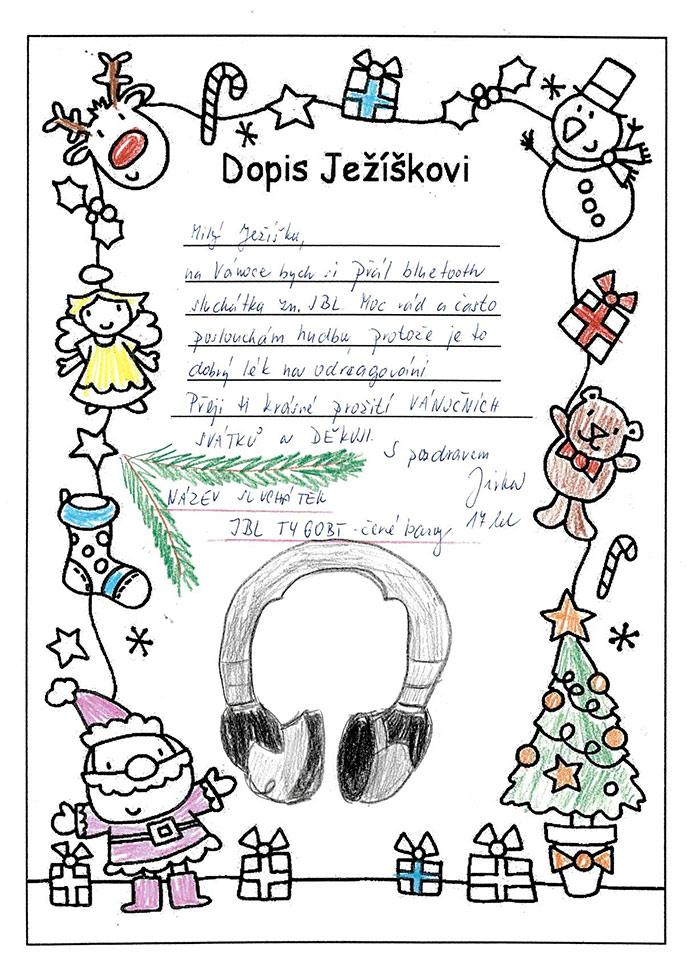 Dopis Ježíškovi
Milý Ježíšku,
na Vánoce bych si přál bluetooth
sluchátka zn. JBL. Moc rád a často
poslouchám hudbu protože je to
dobrý lék na odreagování
Přeji ti krásné prožití VÁNOČNÍCH
SVÁTKŮ a DĚKUJI.
S pozdravem
Jirka
17 let
NÁZEV SLUCHÁTEK
JBL TYGOBT - čené barvy